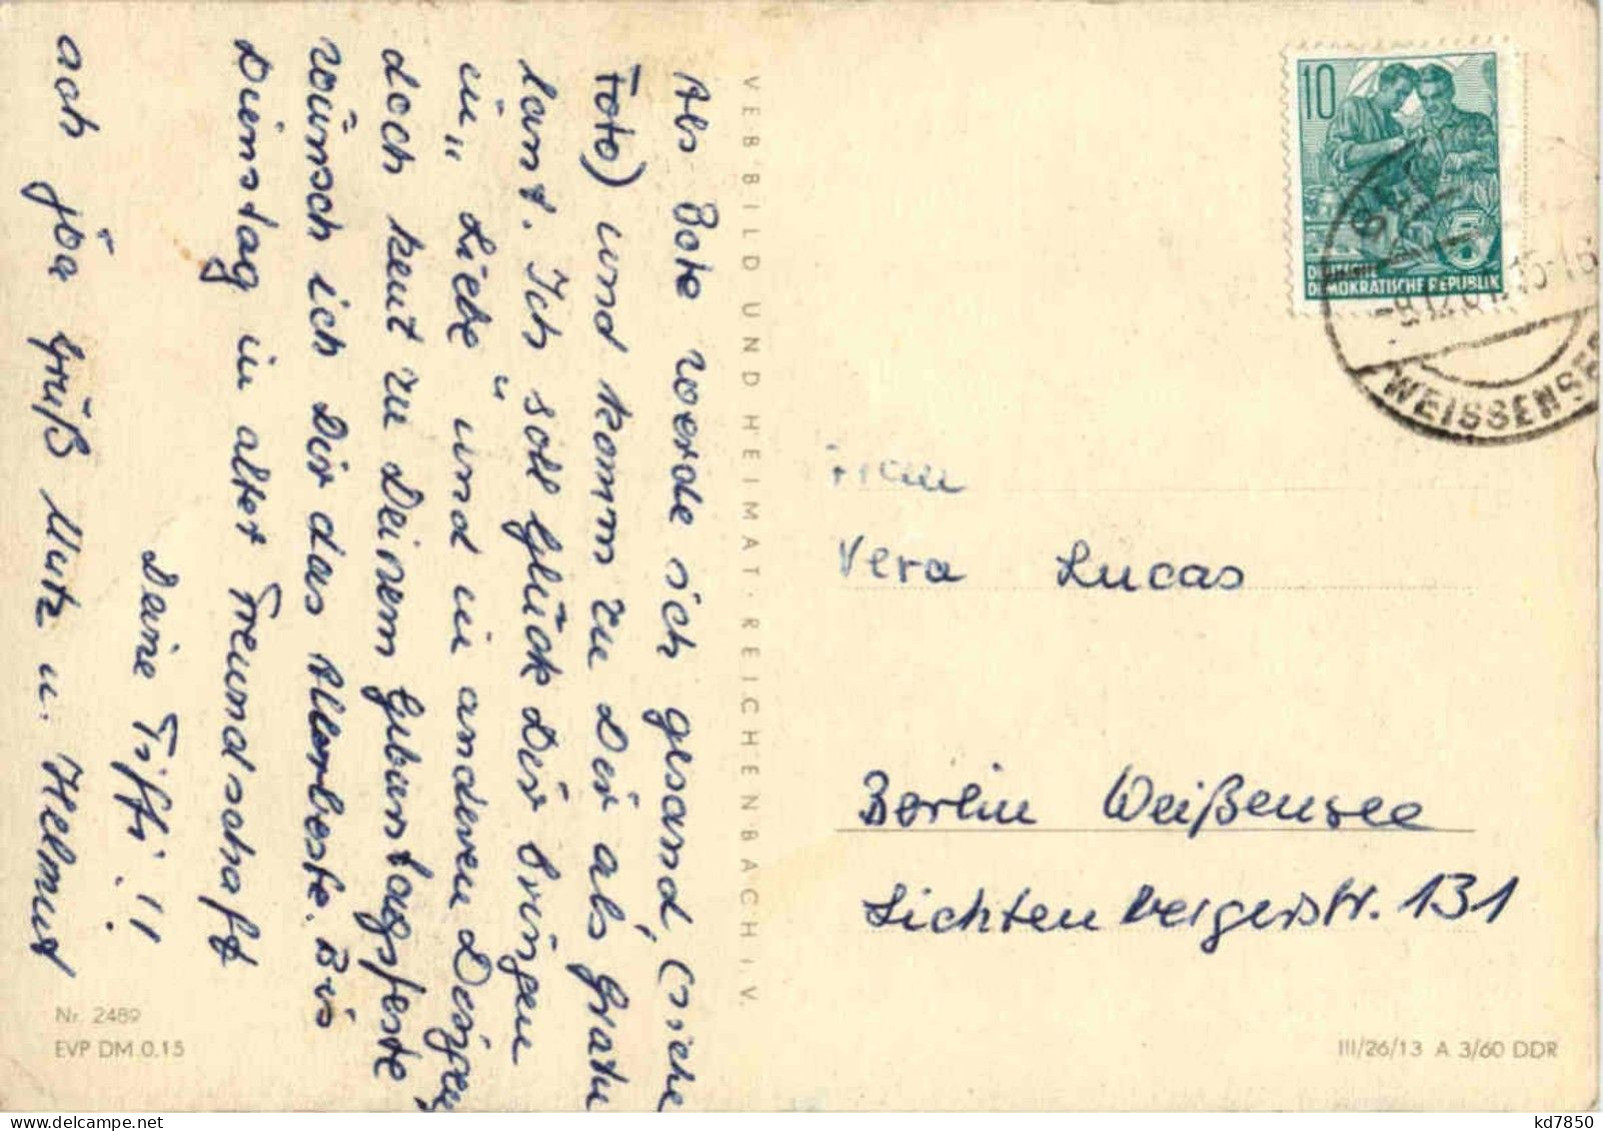 Als Bote werde ich gesand, (siehe
Foto) und komm zu Dir als Gratu
lant. Ich soll Glück Dir bringen
in „Liebe" und in anderen Dingen,
doch heut zu Deinem Geburtagsfeste
wünsch ich Dir das Allerbeste. Bis
Dienstag in alter Freundschaft
Deine Tiffi!!
ach ja grüß Mutz u. Hellmut
VEB BILD UND HEIMAT · REICHENBACH i. V.
Nr. 2489
EVP DM 0.15
10
DEUTSCHE
DEMOKRATISCHE REPUBLIK
WEISSENSEE
Frau
Vera Lucas
Berlin Weißensee
Lichtenbergerstr. 131
III/26/13 A 3/60 DDR
kd7850